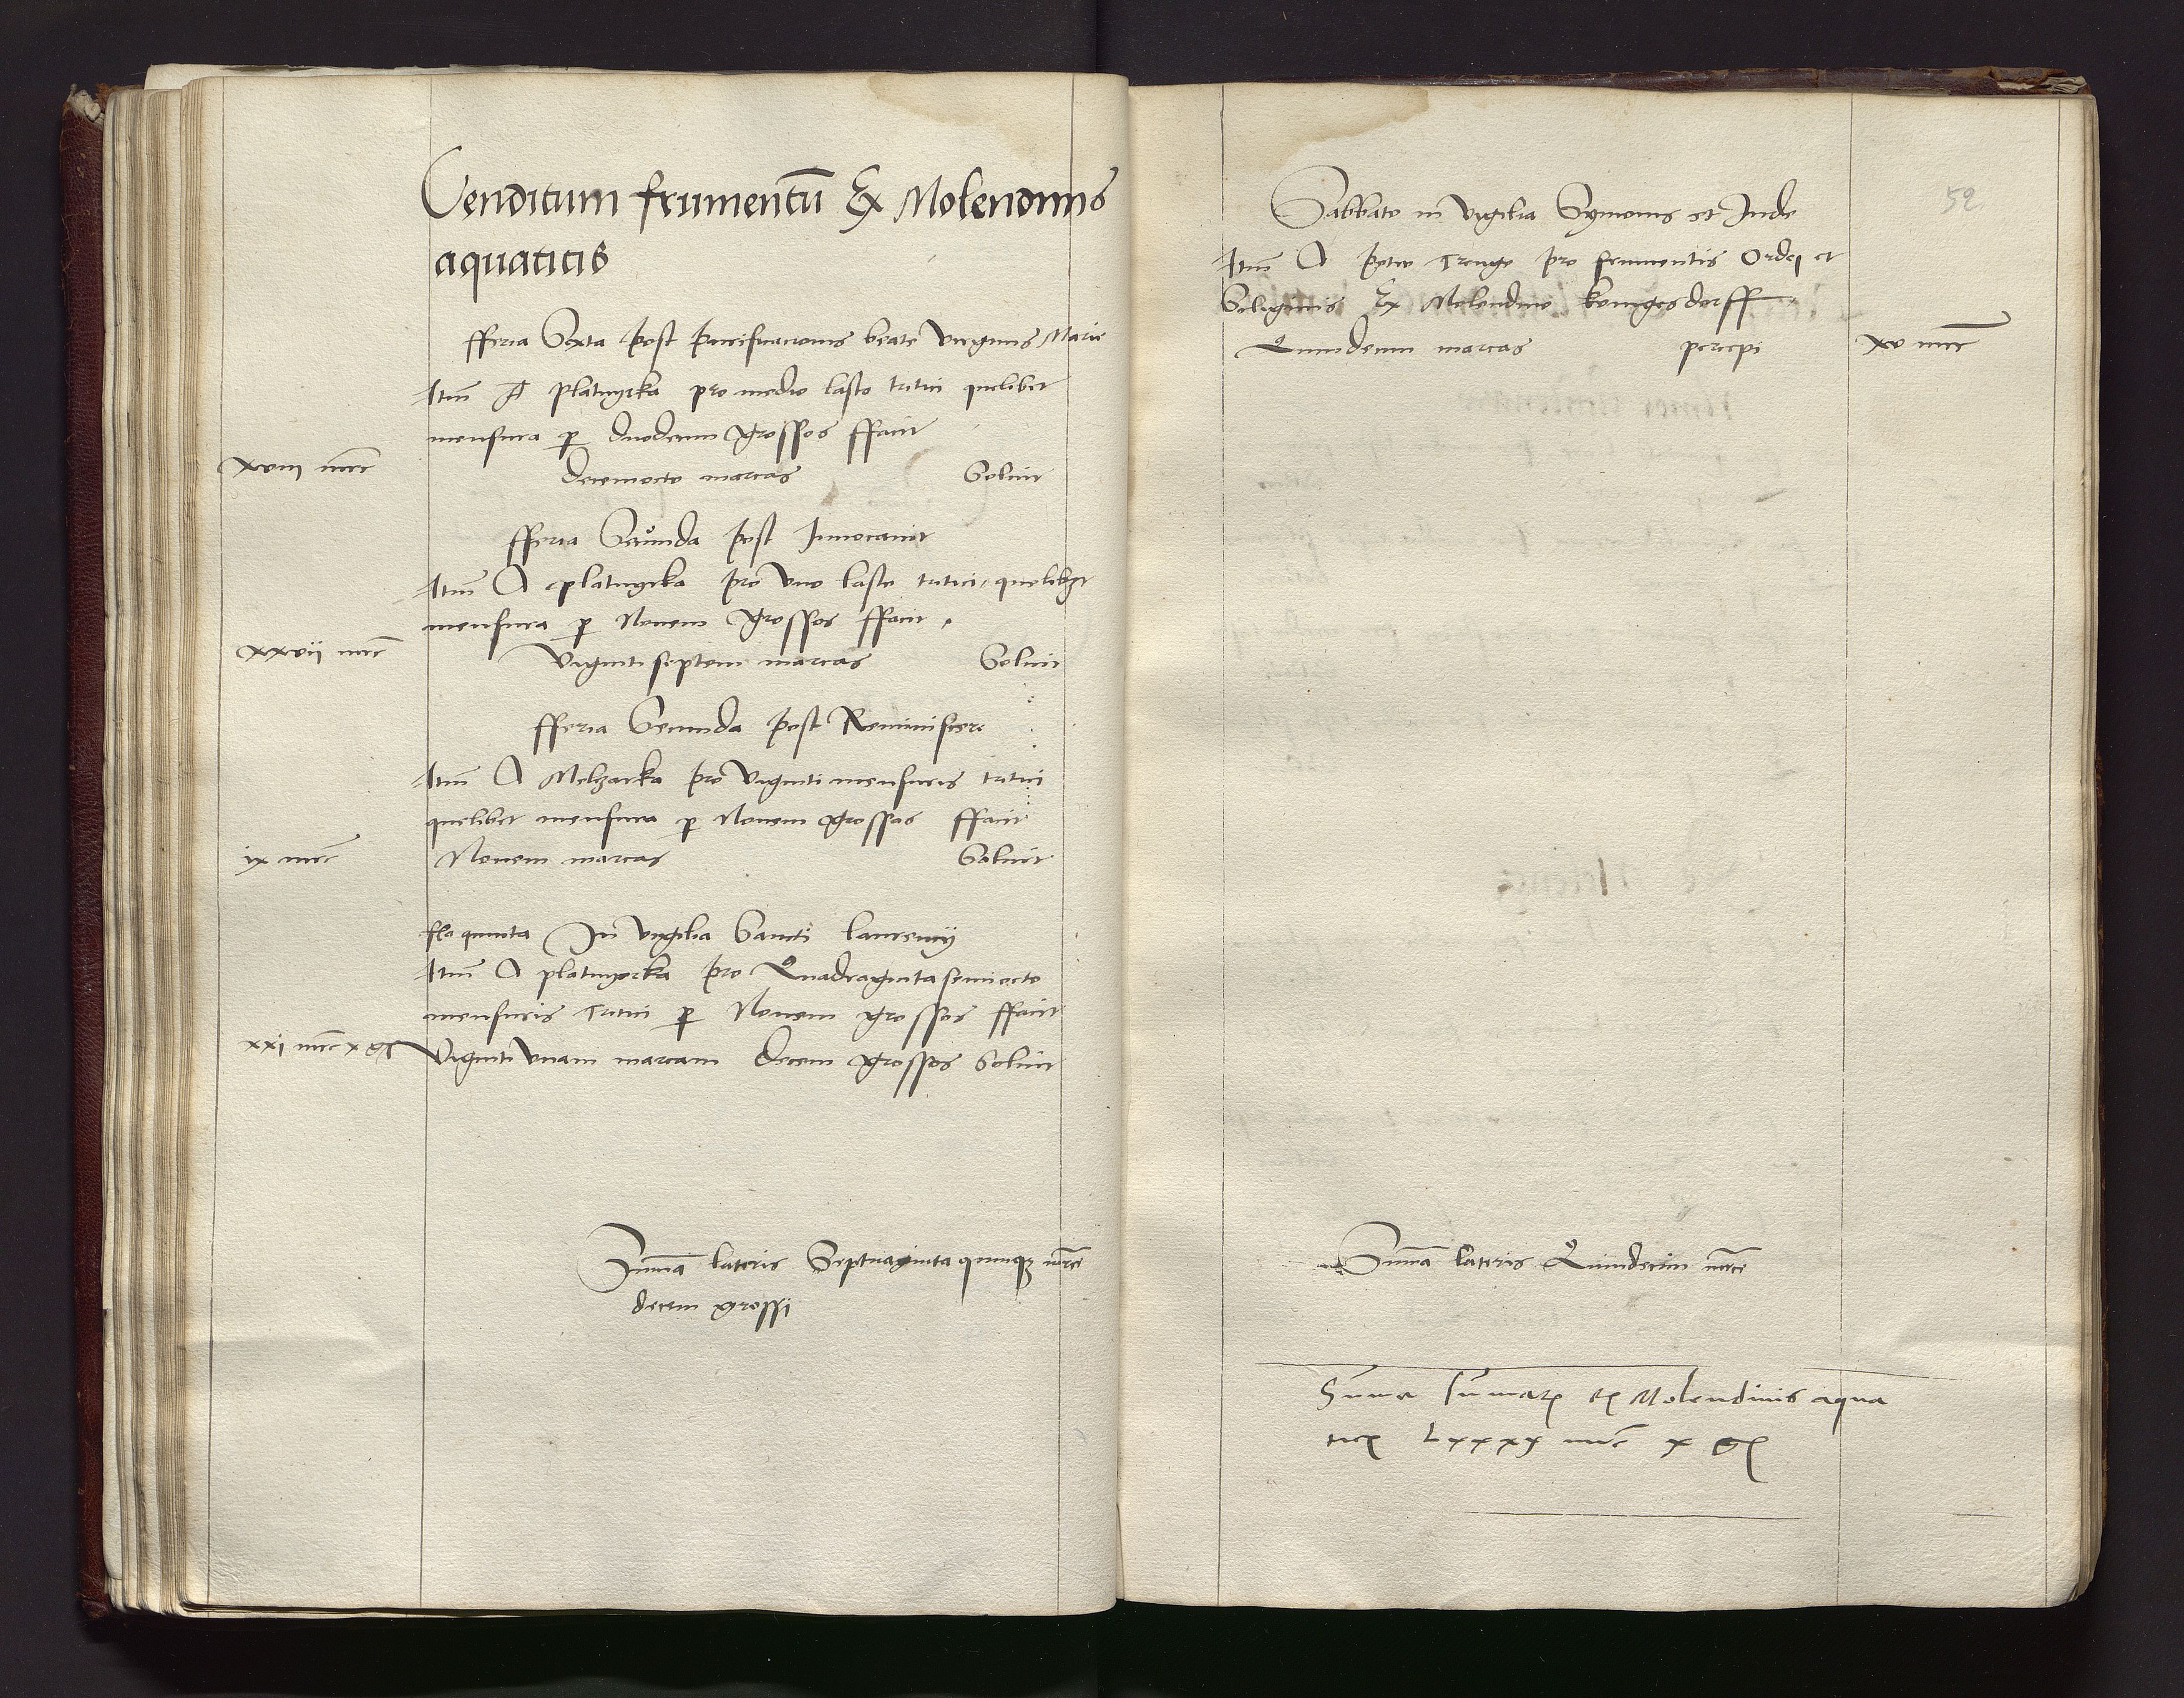 Venditum frumentū Ex Molendinis
aquaticis
fferia Sexta post Purificacionis beate virginis Marie
Itm̄ A Platnyrka pro medio lasto tritici quelibet
mensura p duodecim grossos ffacit
xviii mrc decemocto marcas Soluit
fferia Secunda post Inuocauit
Itm̄ A platnyrka pro vno lasto tritici quelibet
mensura p Nouem grossos ffacit
xxvii mrc viginti septem marcas Soluit
fferia Secunda post Reminiscere
Itm̄ A Melzarka pro viginti mensuris tritici
quelibet mensura p Nouem grossos ffacit
ix mrc Nouem marcas Soluit
fla quinta In vigilia Sancti laurencij
Itm̄ A platnyrka pro Quadraginta septem
mensuris tritici p Nouem grossos ffacit
xxi mrc x g Viginti vnam marcam decem grossos Soluit
Suma lateris Septuaginta quinqȝ mrce
decem grossi
52
Sabbato in vigilia Symonis et Jude
Itm̄ A Petro Trenge pro frumentis Ordej et
Siliginis Ex Molendino konigesdorff
Quindecim marcas percepi xv mrc
Suma lateris Quindecim mrce
Suma sumarꝫ ex Molendinis aqua
ticis Lxxxx mrc x g